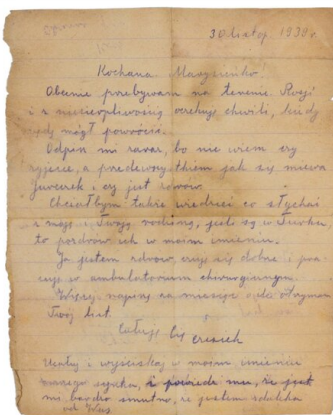 30 Listop 1939 r.
Kochana Marysieńko.
Obecnie przebywam na terenie Rosji
i z niecierpliwością oczekuję chwili, kiedy
będę mógł powrócić.
Odpisz mi zaraz, bo nie wiem czy
żyjecie, a przedewszystkiem jak się miewa
Juwcerek i czy jest zdrów.
Chciałbym także wiedzieć co słychać
z moją i Twoją rodziną, jeśli są w Turku,
to pozdrów ich w moim imieniu.
Ja jestem zdrów, czuję się dobrze i pra-
cuję w ambulatorium chirurgicznym.
Więcej napiszę za miesiąc gdy otrzymam
Twój list.
Całuję Cię Czesiek
Ucałuj i wyściskaj w moim imieniu
naszego synka, i powiedz mu, że jest
mi bardzo smutno, że jestem zdaleka
od Was.